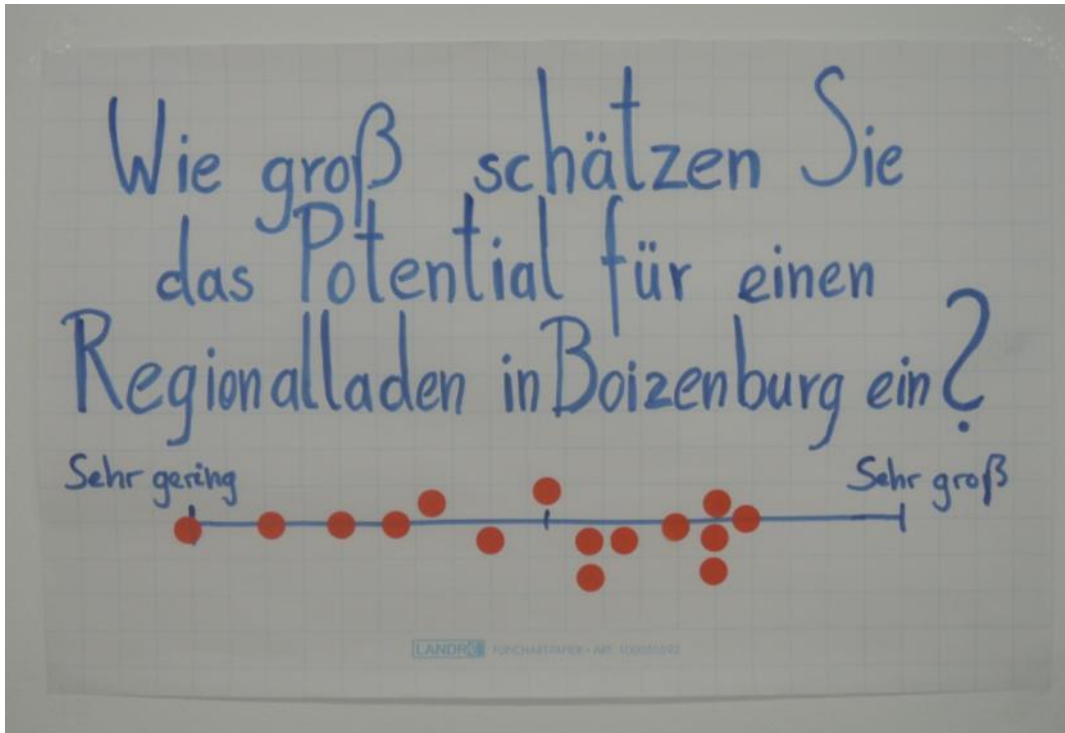 Wie groß schätzen Sie
das Potential für einen
Regionalladen in Boizenburg ein?
Sehr gering
Sehr groß
LANDRÉ